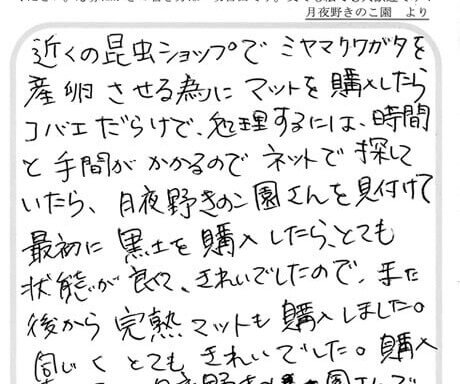 月夜野きのこ園　より
近くの昆虫ショップでミヤマクワガタを
産卵させる為にマットを購入したら
コバエだらけで、処理するには、時間
と手間がかかるのでネットで探して
いたら、月夜野きのこ園さんを見付けて
最初に黒土を購入したら、とても
状態が良くて、きれいでしたので、また
後から完熟マットも購入しました。
同じくとてもきれいでした。購入